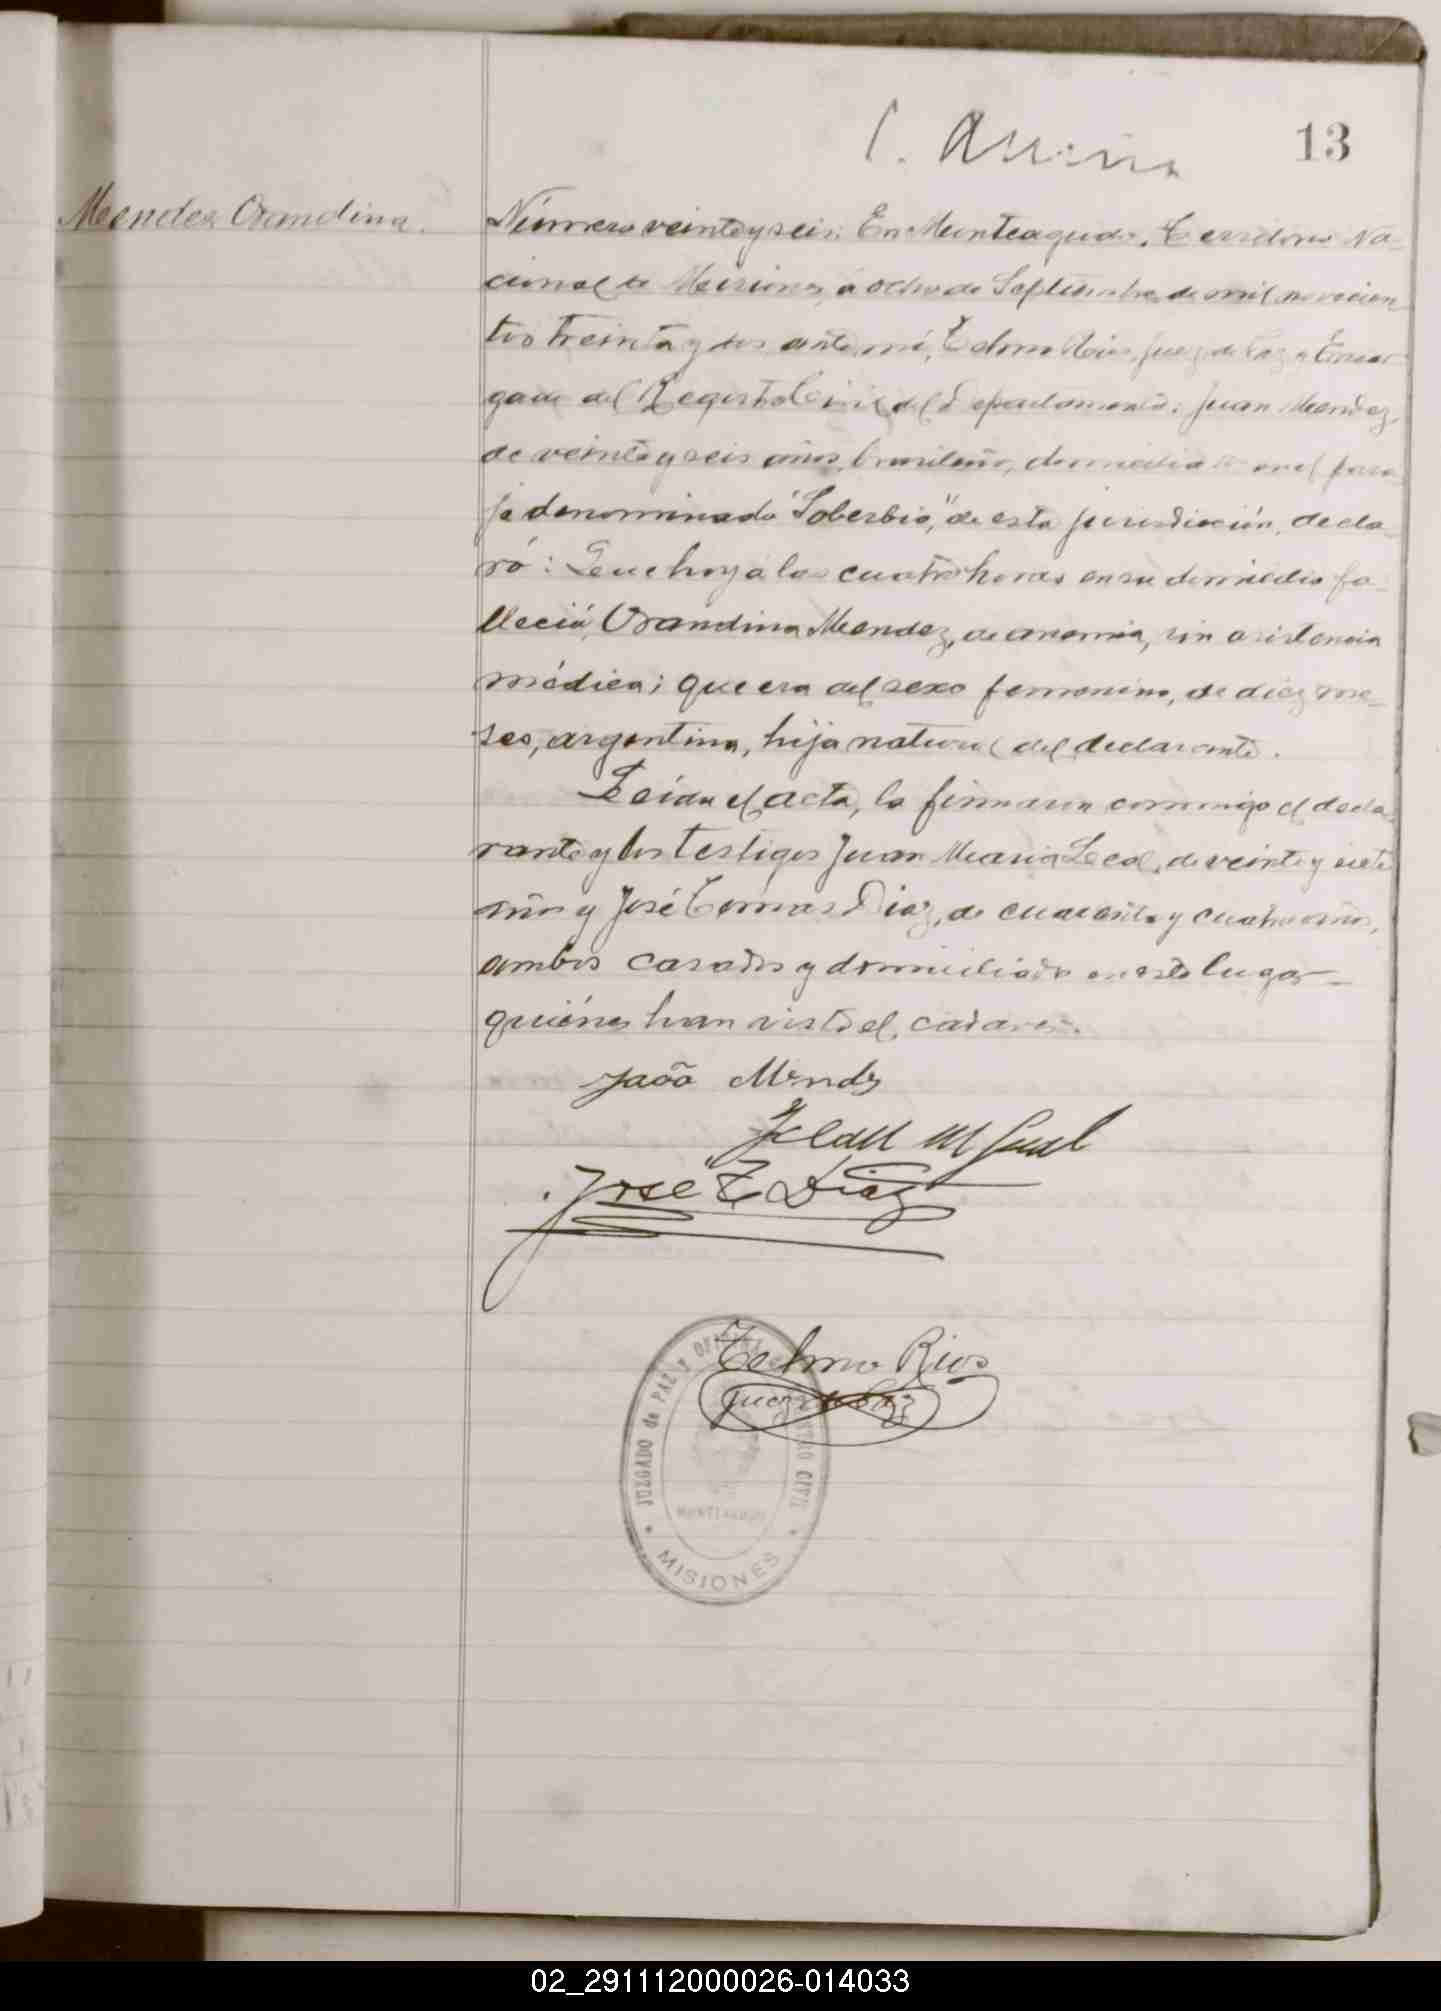 13
Mendez Orandina.
Número veinte y seis: En Monteagudo, Territorio Na-
cional de Misiones, a ocho de Septiembre de mil novecien-
tos treinta y dos ante mí, Telmo Rios, Juez de Paz y Encar-
gado del Registro Civil del Departamento: Juan Mendez,
de veinte y seis años, brasileño, domiciliado en el para-
je denominado "Soberbio," de esta jurisdicción, decla-
ró: Que hoy a las cuatro horas en su domicilio fa-
lleció, Orandina Mendez, de anemia, sin asistencia
médica; que era del sexo femenino, de diez me-
ses, argentina, hija natural del declarante.
Leída el acta, la firmaron conmigo el decla-
rante y los testigos Juan Maria Leal, de veinte y siete
años y José Tomas Diaz, de cuarenta y cuatro años,
ambos casados y domiciliados en este lugar
quiénes han visto el cadaver.
João Mendes
José T Diaz
Telmo Rios
Juez de Paz
JUZGADO de PAZ Y OFICINA REGISTRO CIVIL
MONTEAGUDO
MISIONES
02_291112000026-014033